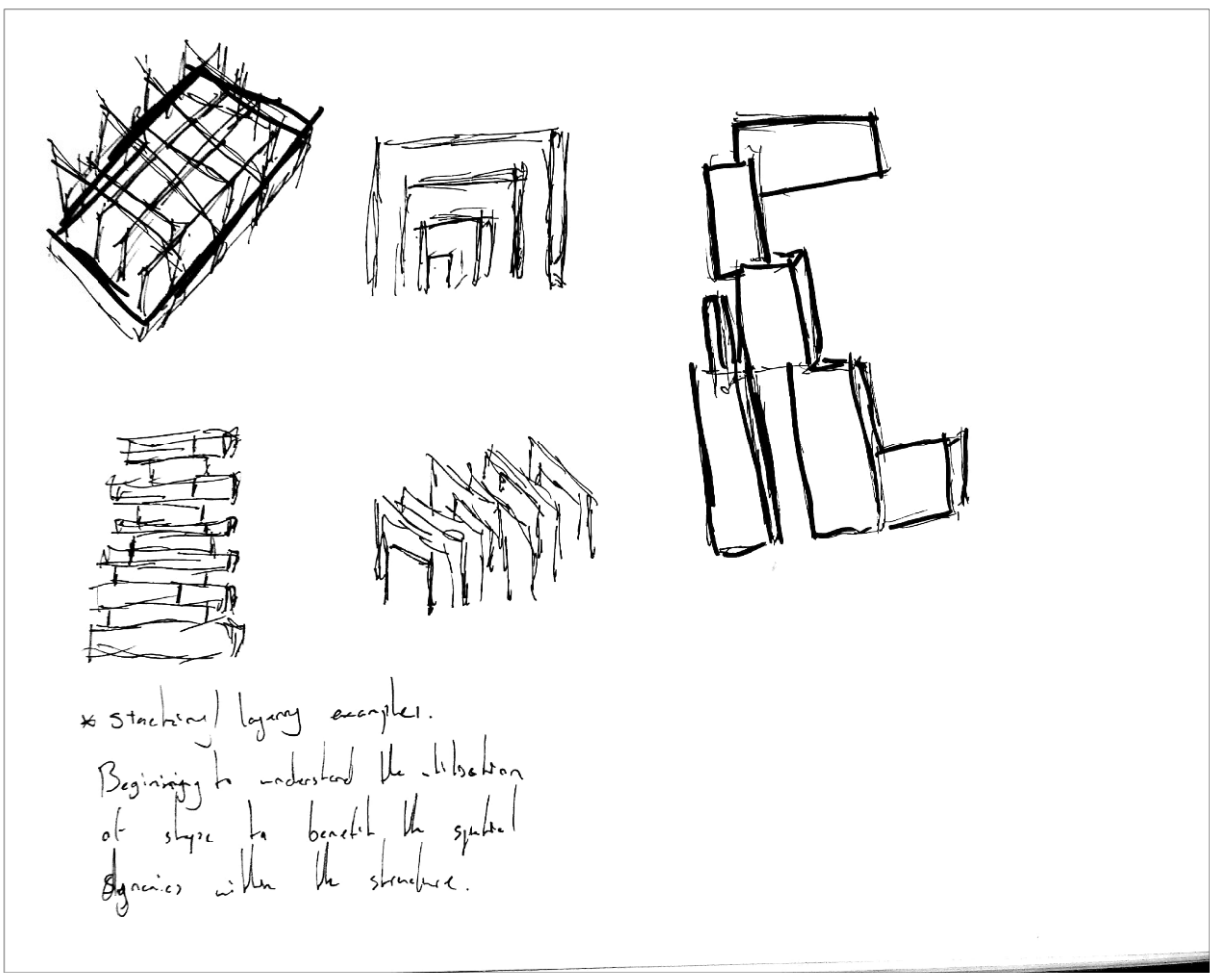 * Stacking/ layering examples.
Beginining to understand the utilisation
of shape to benefit the spatial
dynamics within the structure.